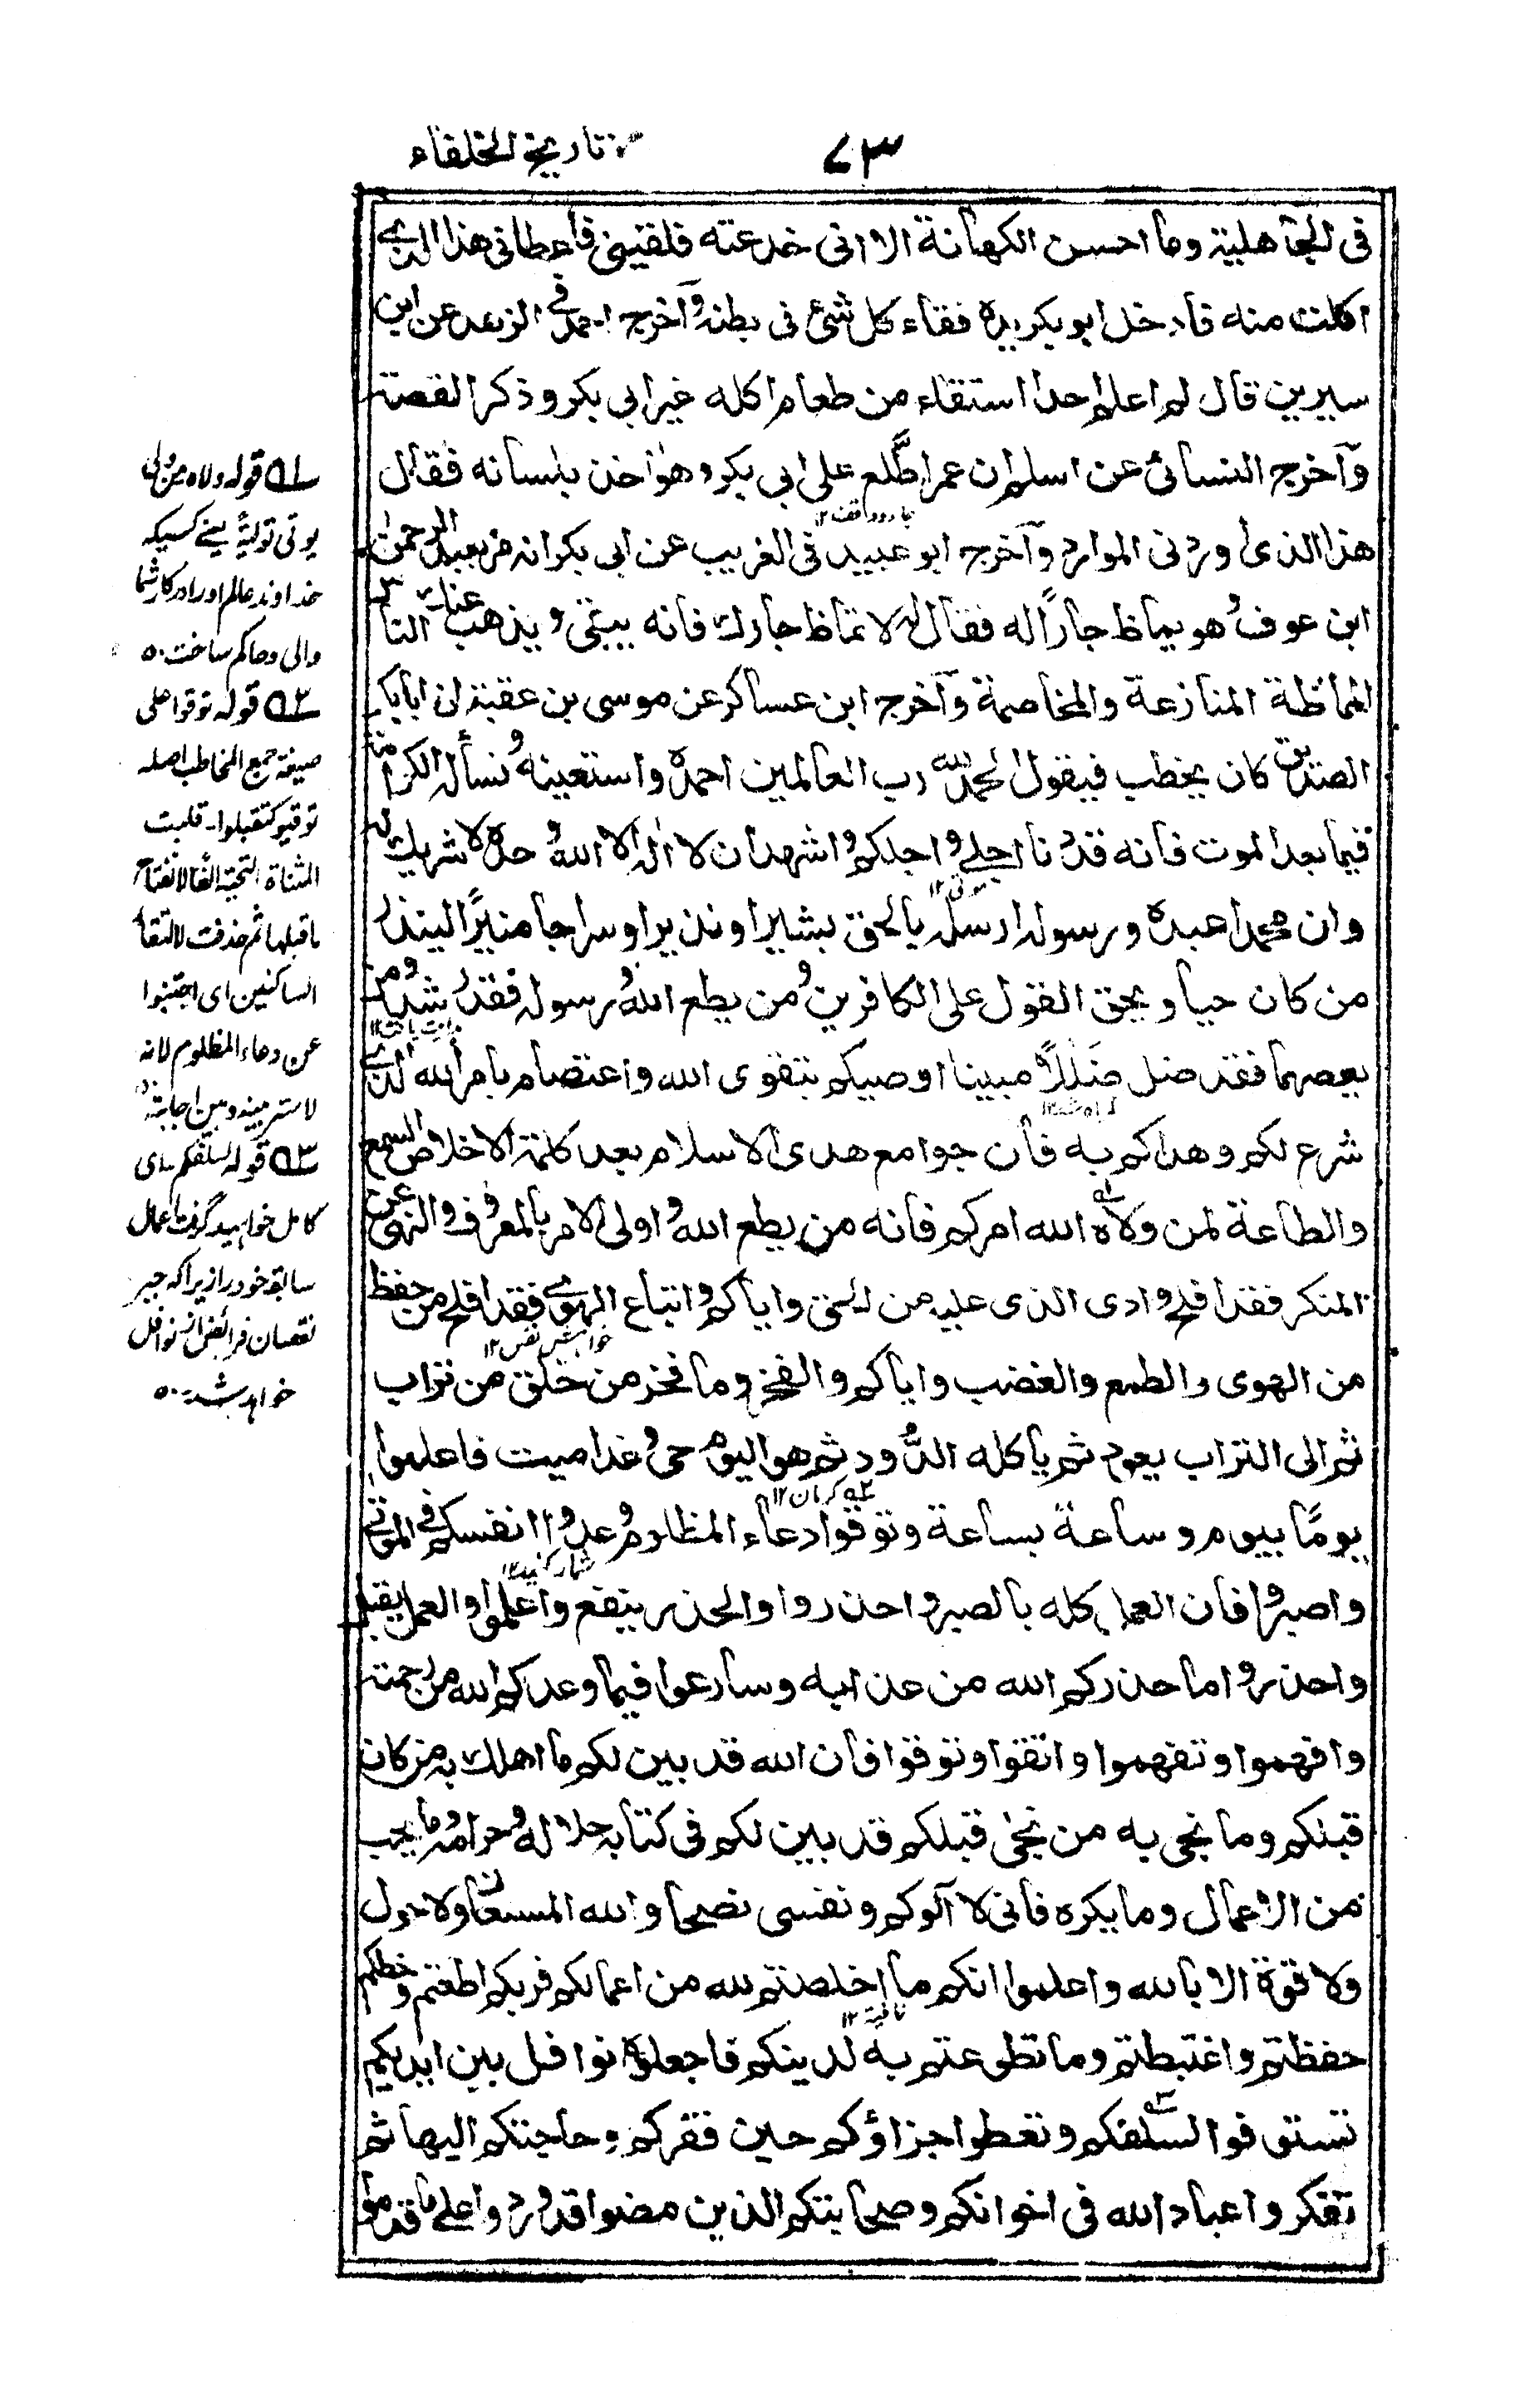 ٧٣
تاريخ الخلفاء
فى الجاهلية وما احسن الكهانة الا انى خدعته فلقينى فاعطانى هذا الذى
اكلت منه فادخل ابو بكر يده فقاء كل شئ فى بطنه وآخرج احمد فى الزهد عن ابن
سيرين قال لم اعلم احدا استقاء من طعام اكله غير ابى بكر وذكر القصة
وآخرج النسائى عن اسلم ان عمر اطّلع على ابى بكر وهو آخذ بلسانه فقال
هذا الذى اوردنى الموارد وآخرج ابو عبيد فى الغريب عن ابى بكر انه مر بعبد الرحمن
ابن عوف وهو يماظ جاراً له فقال له لا تماظ جارك فانه يبقى ويذهب عنك الناس
المماظة المنازعة والمخاصمة وآخرج ابن عساكر عن موسى بن عقبة ان ابابكر
الصديق كان يخطب فيقول الحمد لله رب العالمين احمده واستعينه ونسأله الكرامة
فيما بعد الموت فانه قد دنا اجلى واجلكم واشهد ان لا اله الا الله وحده لا شريك له
وان محمدا عبده ورسوله ارسله بالحق بشيرا ونذيرا وسراجا منيرًا لينذر
من كان حيا ويحق القول على الكافرين ومن يطع الله ورسوله فقد رشد ومن
يعصهما فقد ضل ضَلٰلاً مبينا اوصيكم بتقوى الله واعتصام بامر الله الذى
شرع لكم وهداكم به فان جوامع هدى الاسلام بعد كلمة الاخلاص السمع
والطاعة لمن ولاه الله امركم فانه من يطع الله واولى الامر بالمعروف والنهى عن
المنكر فقد افلح وادى الذى عليه من الحق واياكم واتباع الهوى فقد افلح من حفظ
من الهوى والطمع والغضب واياكم والفخر وما فخر من خلق من تراب
ثم الى التراب يعود ثم ياكله الدُّود ثم هو اليوم حى وغدا ميت فاعلموا
يومًا بيوم وساعة بساعة وتوقوا دعاء المظلوم وعدوا انفسكم فى الموتى
واصبروا فان العمل كله بالصبر واحذروا والحذر ينفع واعملوا والعمل يقبل
واحذروا ما حذركم الله من عذابه وسارعوا فيما وعدكم الله من رحمته
وافهموا وتفهموا واتقوا وتوقوا فان الله قد بين لكم ما اهلك به من كان
قبلكم وما نجى به من نجى قبلكم قد بين لكم فى كتابه حلاله وحرامه وما يحب
من الاعمال وما يكره فانى لا آلوكم ونفسى نصحا والله المستعان ولا حول
ولا قوة الا بالله واعلموا انكم ما اخلصتم لله من اعمالكم فربكم اطعتم وحظكم
حفظتم واغتبطتم وما تطوعتم به لدينكم فاجعلوه نوافل بين ايديكم
تستوفوا لسلفكم وتعطوا جزاؤكم حين فقركم وحاجتكم اليها ثم
تفكروا عباد الله فى اخوانكم وصحابتكم الذين مضوا قد وردوا على ما قدموا
له قوله ولاه من ولى
يولى توليةً يعنى كسيكه
خداوند عالم اورا در كار شما
والى وحاكم ساخت ٥
٢ه قوله توقوا على
صيغة جمع المخاطب اصله
توقيوا كتقبلوا - قلبت
المثناة التحتية الفا لانفتاح
ما قبلها ثم حذفت لالتقاء
الساكنين اى اجتنبوا
عن دعاء المظلوم لانه
لا ستر بينه وبين اجابته
٣ه قوله لسلفكم اى
كامل خواهيد گرفت اعمال
سابقه خود را زيرا كه جبر
نقصان فرائض از نوافل
خواهد شد ٥